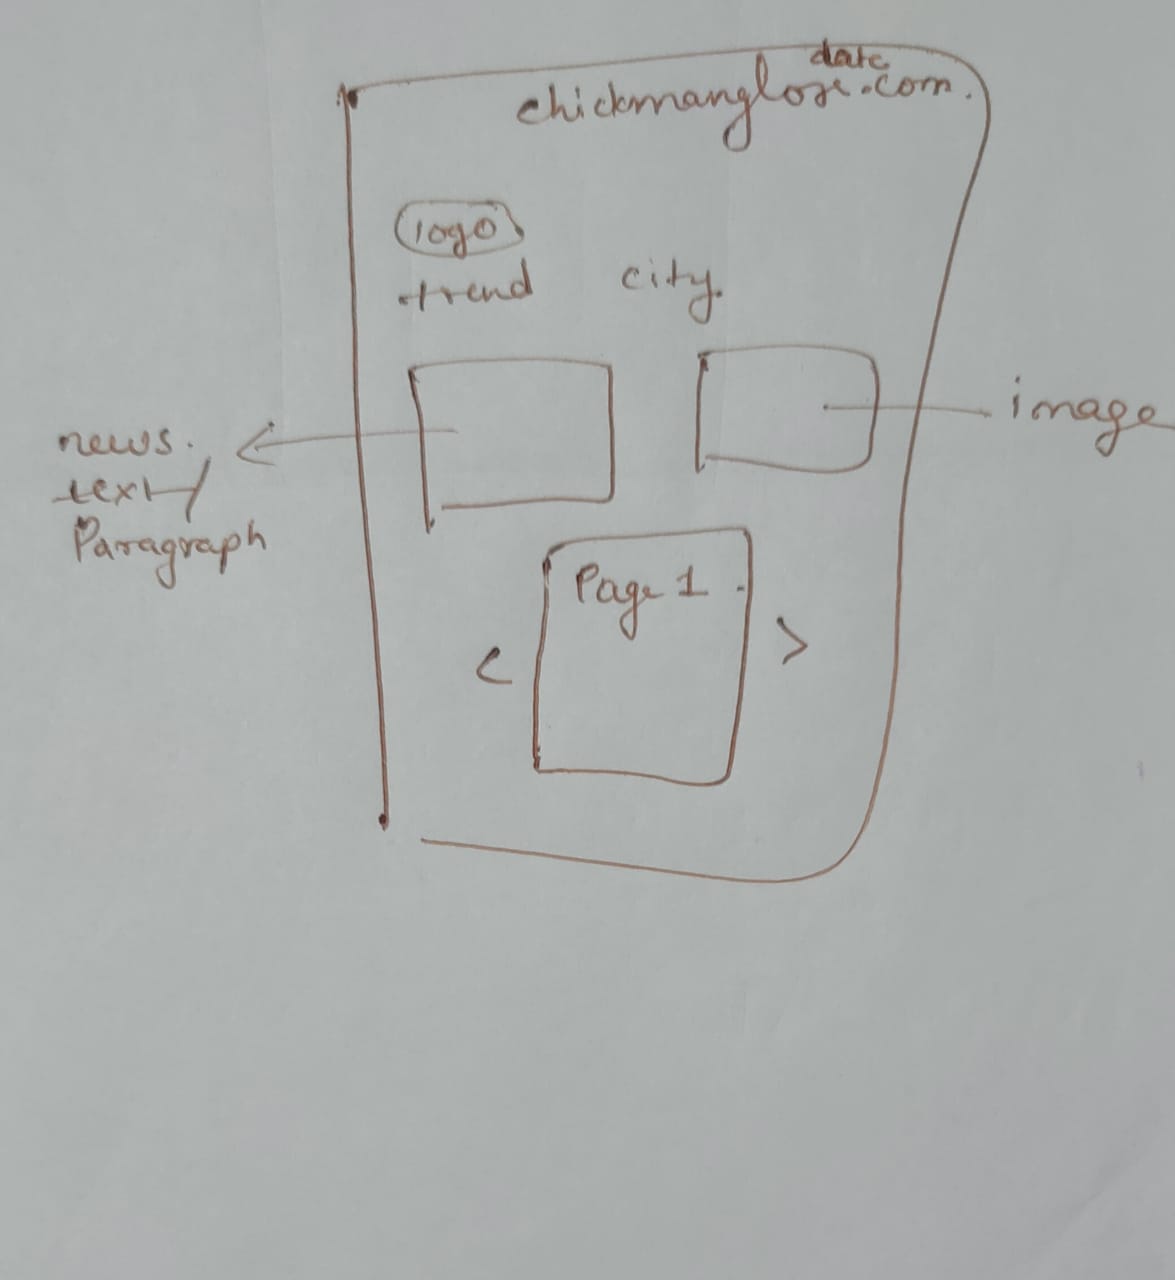 date
chickmanglore.com.
logo
trend city.
news.
text/
Paragraph
image
Page 1
< >